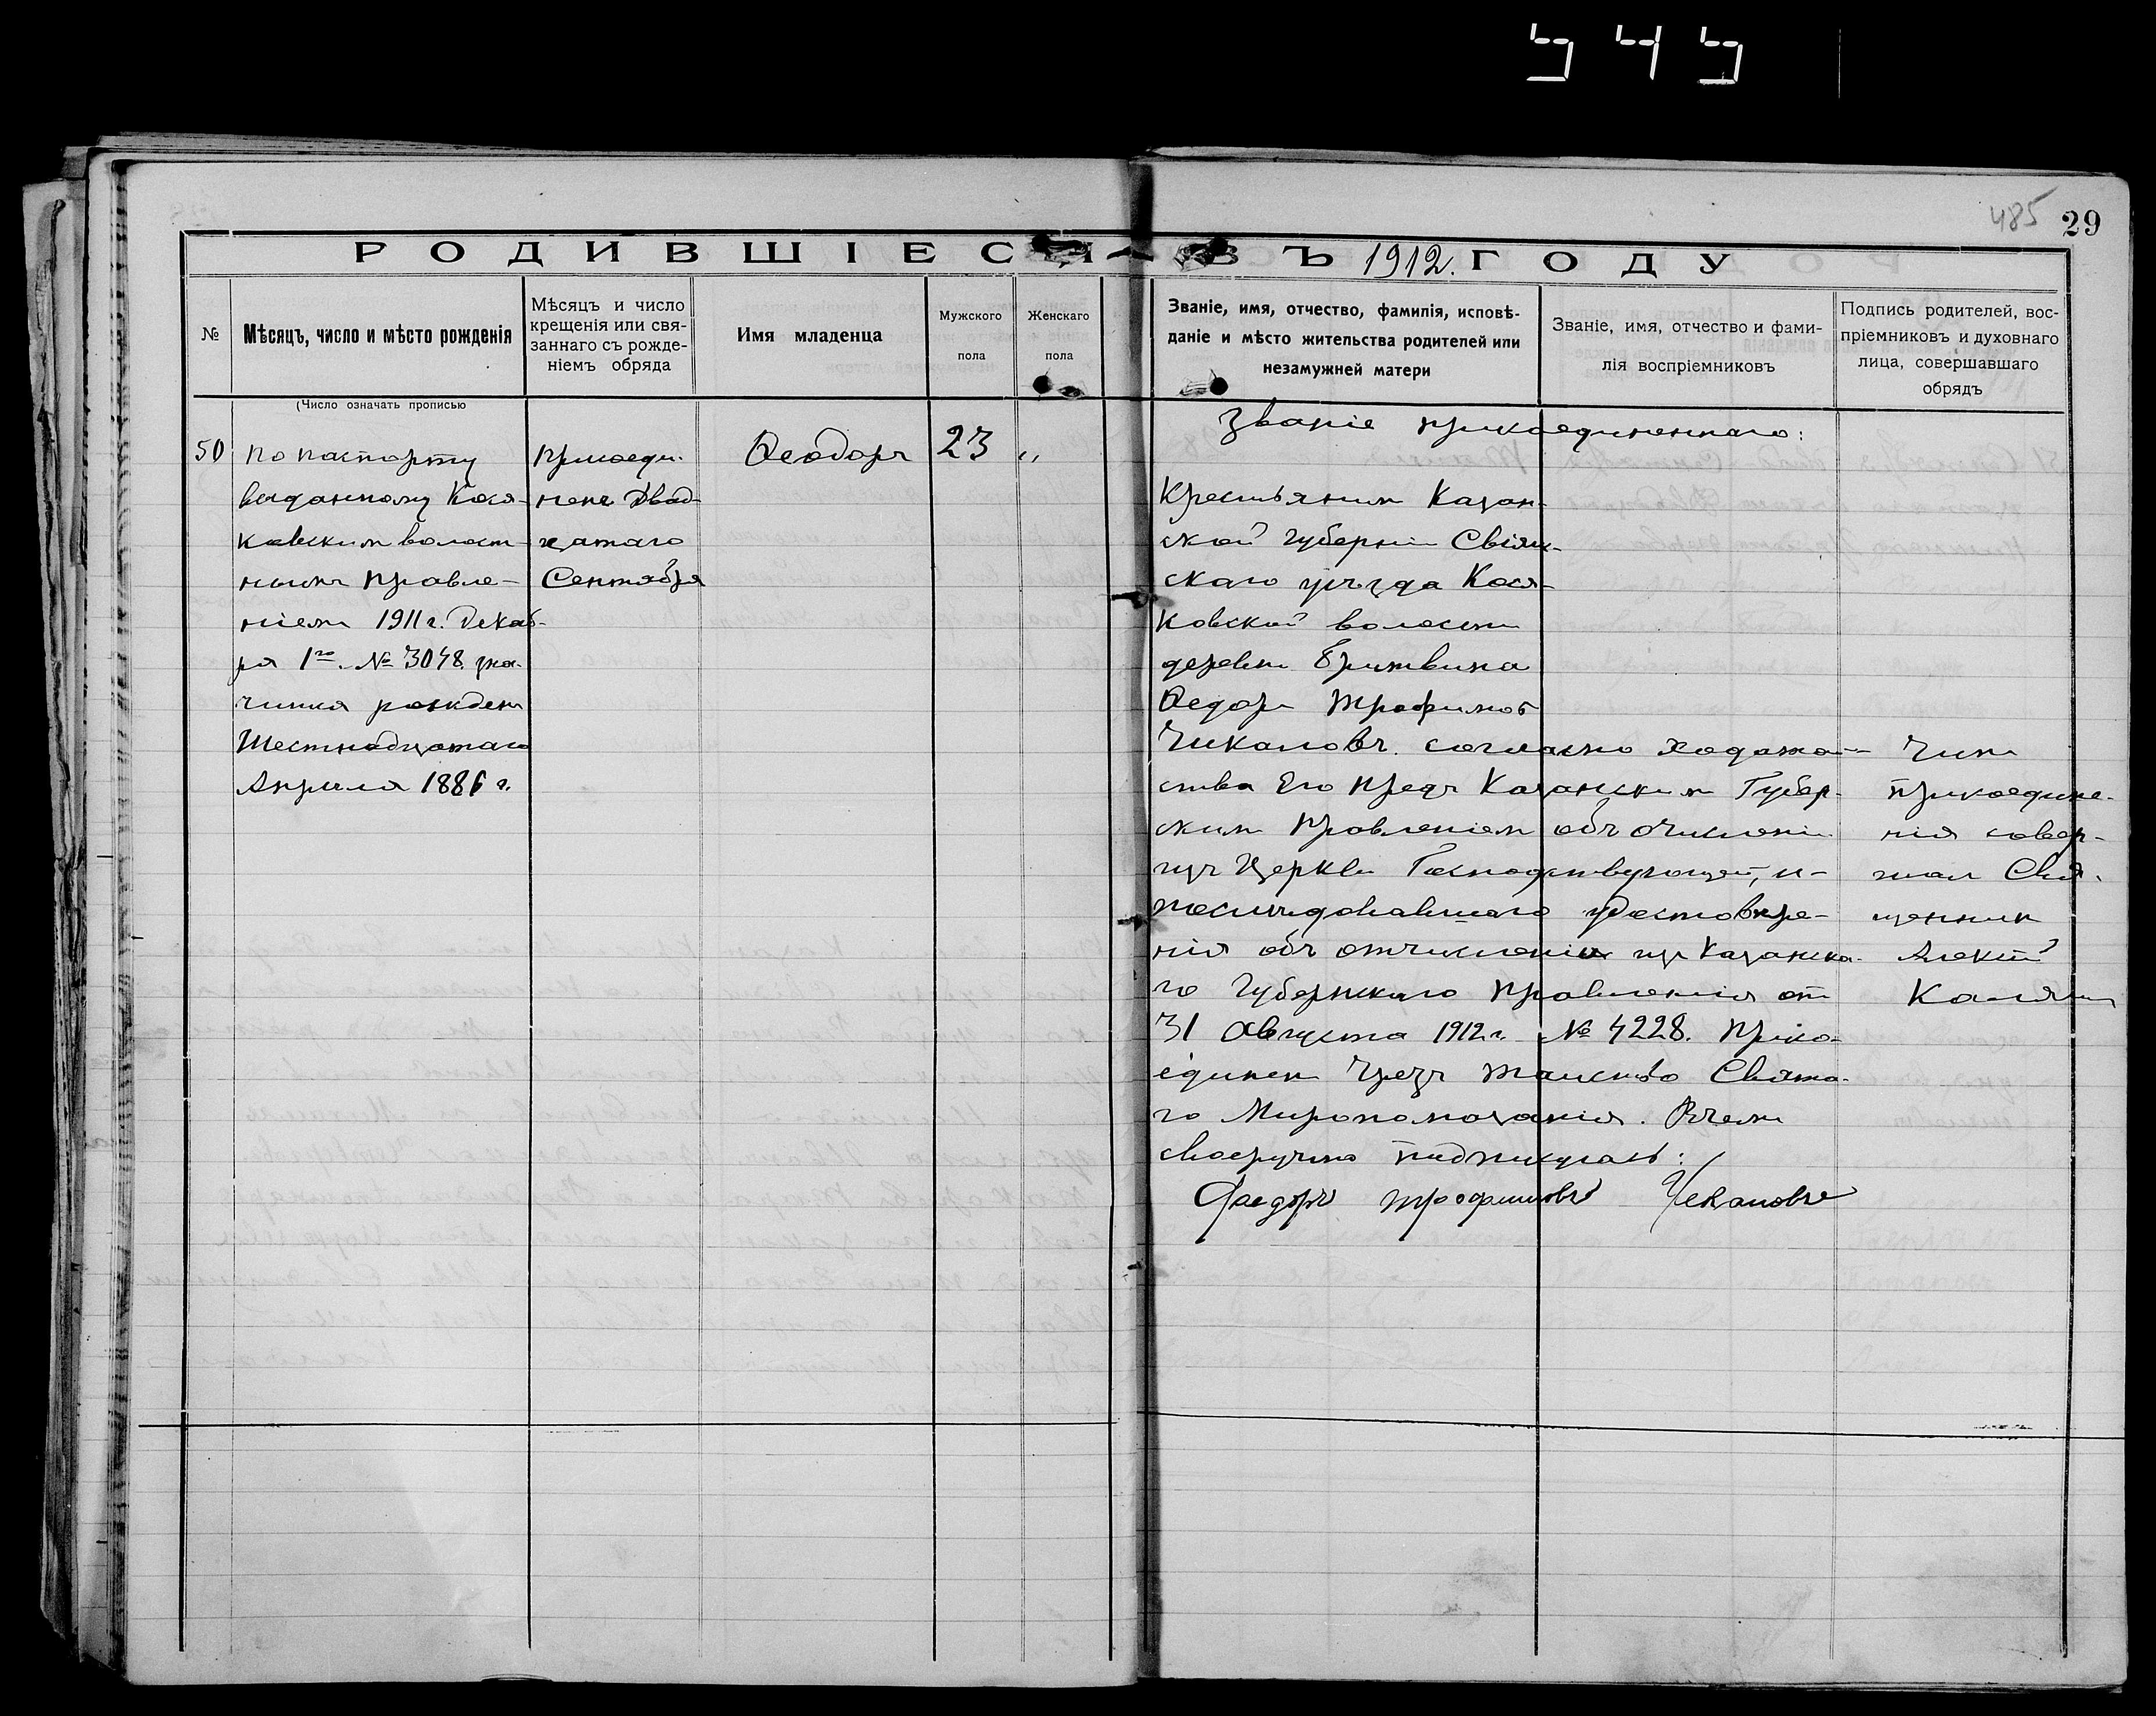 545
485 29
РОДИВШІЕСЯ ВЪ 1912. ГОДУ
№
Мѣсяцъ, число и мѣсто рожденія
Мѣсяцъ и число
крещенія или свя-
заннаго съ рожде-
ніемъ обряда
Имя младенца
Мужского
пола
Женскаго
пола
Званіе, имя, отчество, фамилія, исповѣ-
даніе и мѣсто жительства родителей или
незамужней матери
Званіе, имя, отчество и фами-
лія воспріемниковъ
Подпись родителей, вос-
пріемниковъ и духовнаго
лица, совершавшаго
обрядъ
(Число означать прописью
50
по паспорту
выданному Кося-
ковским волост-
нымъ правле-
ніем 1911 г. Декаб-
ря 1го. № 3048. зна-
чится рожден
Шестнадцатаго
Апреля 1886 г.
Присоеди-
нене Двад-
цатаго
Сентября
Ѳеодоръ
23
"
Званіе присоединеннаго:
Крестьянин Казан-
ской губерніи Свіяж-
скаго уѣзда Кося-
ковской волости
деревни Бритвина
Ѳедор Трофимов
Чикаловъ. согласно ходатай-
ства Его предъ Казанским Губер-
ским Правленіем объ очислении
изъ Церкви Господствующей, и
последовавшаго удостовере-
нія объ отчислении из Казанска-
го Губернскаго Правленія от
31 Августа 1912 г. № 4228. Присо-
единен чрезъ таинство Свята-
го Миропомазанія. Вчем
своеручно подписуюсь:
Федоръ трофимовъ Чекаловъ
Чин
присоедине-
нія совер-
шал Свя-
щенник
Алексей
Калягин